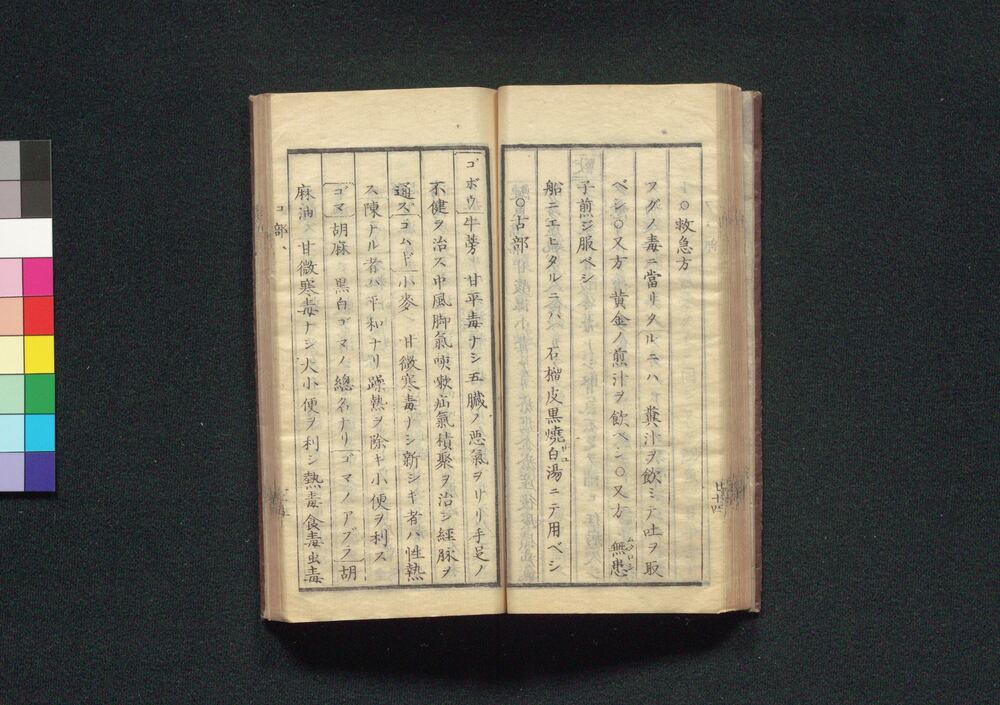 ○救急方
フグノ毒ニ當リタルニハ 糞汁ヲ飲ミテ吐ヲ取
ベシ○又方 黄金ノ煎汁ヲ飲ベシ○又方 無患
子煎ジ服ベシ
船ニエヒタルニハ 石榴皮黒燒白湯ニテ用ベシ
○古部
ゴボウ 牛蒡 甘平毒ナシ五臓ノ悪氣ヲサリ手足ノ
不健ヲ治ス中風脚氣咳嗽疝氣積聚ヲ治シ經脉ヲ
通ズ コムギ 小麥 甘微寒毒ナシ新シキ者ハ性熱
ス陳ナル者ハ平和ナリ躁熱ヲ除キ小便ヲ利ス
ゴマ 胡麻 黒白ゴマノ總名ナリ ゴマノアブラ 胡
麻油 甘微寒毒ナシ大小便ヲ利シ熱毒食毒虫毒
コ部